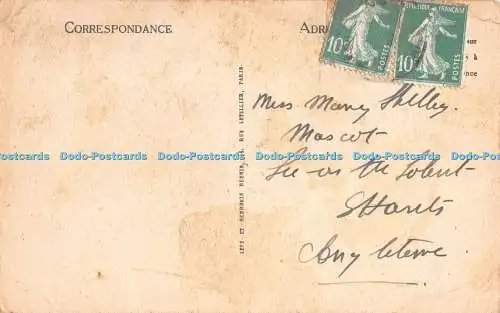 CORRESPONDANCE
ADR
RÉPUBLIQUE FRANÇAISE
10c
POSTES
10c
POSTES
Miss Mary Shelley.
Mascot
Lee-on the Solent
Hants
Angleterre
LEVY ET NEURDEIN RÉUNIS, 44, RUE LETELLIER, PARIS
Dodo-Postcards Dodo-Postcards Dodo-Postcards Dodo-Postcards
Dodo-Postcards Dodo-Postcards Dodo-Postcards Dodo-Postcards